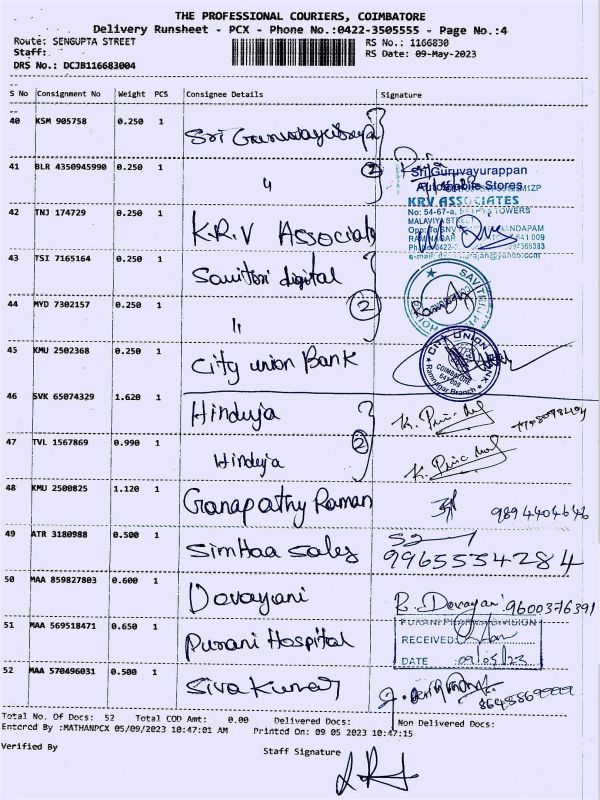 THE PROFESSIONAL COURIERS, COIMBATORE
Delivery Runsheet - PCX - Phone No.:0422-3505555 - Page No.:4
Route: SENGUPTA STREET
RS No.: 1166830
Staff:
RS Date: 09-May-2023
DRS No.: DCJB116683004
S No Consignment No Weight PCS Consignee Details Signature
40 KSM 905758 0.250 1 Sri Guruvayurappan
41 BLR 4350945990 0.250 1 " 2
Sri Guruvayurappan
Automobile Stores
KRV ASSOCIATES
No: 54-67-a,
MALAVIYA STREET
RAM NAGAR
42 TNJ 174729 0.250 1 K.R.V Associats
43 TSI 7165164 0.250 1 Savitori digital
44 MYD 7302157 0.250 1 " 2
45 KMU 2502368 0.250 1 City union Bank
CITY UNION BANK
COIMBATORE
Ramnagar Branch
46 SVK 65074329 1.620 1 Hinduja
47 TVL 1567869 0.990 1 Hinduja 2
48 KMU 2500825 1.120 1 Ganapathy Raman 9894404646
49 ATR 3180988 0.500 1 Simhaa Sales 9965534284
50 MAA 859827803 0.600 1 Devayani R. Devayani 9600376391
51 MAA 569518471 0.650 1 Purani Hospital
RECEIVED
DATE 09/05/23
52 MAA 570496031 0.500 1 Siva Kumar
Total No. Of Docs: 52 Total COD Amt: 0.00 Delivered Docs: Non Delivered Docs:
Entered By :MATHANPCX 05/09/2023 10:47:01 AM Printed On: 09 05 2023 10:47:15
Verified By Staff Signature